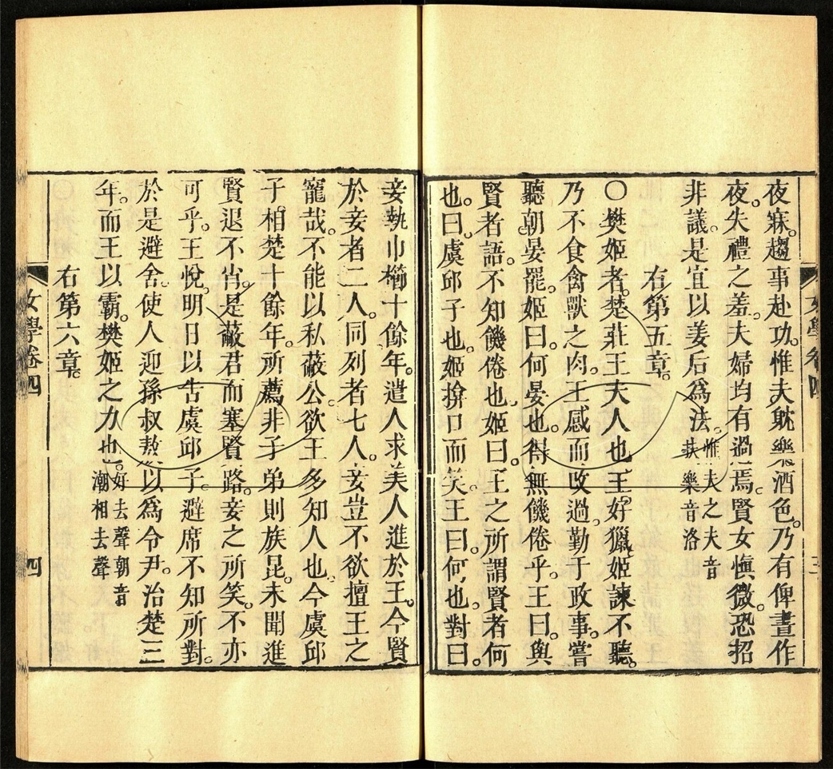 夜寐。趨事赴功。惟夫耽樂酒色。乃有俾晝作
夜。失禮之羞。夫婦均有過焉。賢女愼微。恐招
非議。是宜以姜后爲法。惟夫之夫音
扶樂音洛
右第五章。
〇樊姬者。楚莊王夫人也。王好獵。姬諫不聽。
乃不食禽獸之肉。王感而改過。勤于政事。嘗
聽朝晏罷。姬曰。何晏也。得無饑倦乎。王曰。與
賢者語。不知饑倦也。姬曰。王之所謂賢者何
也。曰。虞邱子也。姬揜口而笑。王曰。何也。對曰。
妾執巾櫛十餘年。遣人求美人進於王。今賢
於妾者二人。同列者七人。妾豈不欲擅王之
寵哉。不能以私蔽公。欲王多知人也。今虞邱
子。相楚十餘年。所薦非子弟則族昆。未聞進
賢退不肖。是蔽君而塞賢路。妾之所笑。不亦
可乎。王悅。明日以告虞邱子。避席不知所對。
於是避舍。使人迎孫叔敖以爲令尹。治楚三
年。而王以霸。樊姬之力也。好去聲朝音
潮相去聲
右第六章。
女學卷四
四